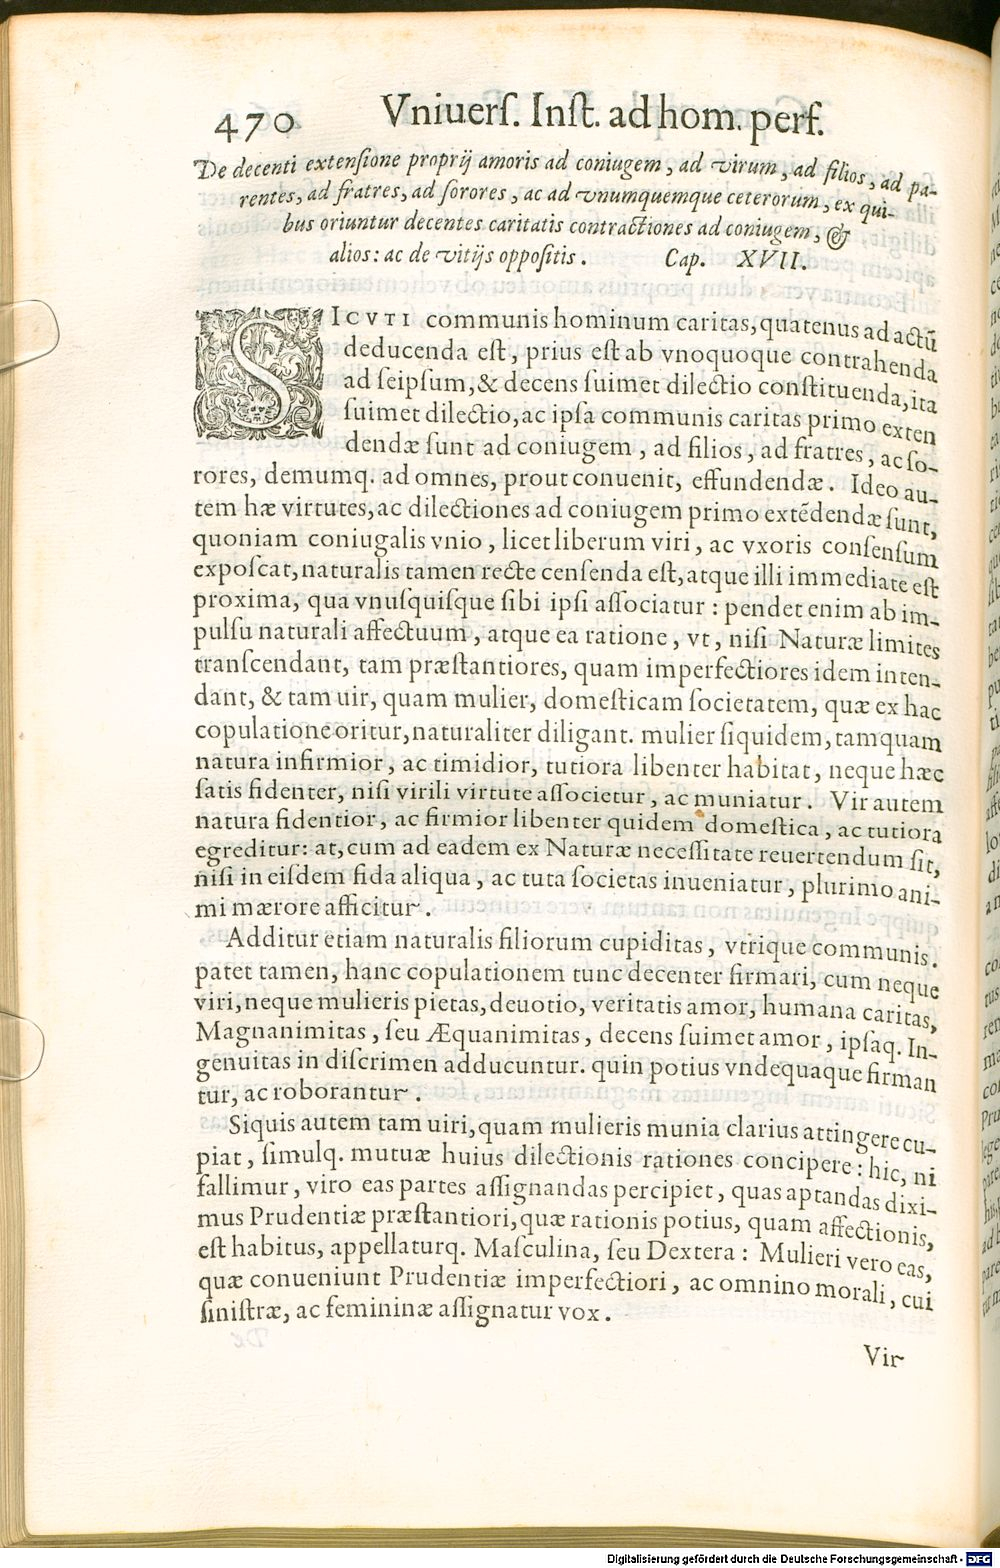 470 Vniuerſ. Inſt. ad hom. perf.
De decenti extenſione proprij amoris ad coniugem, ad virum, ad filios, ad pa-
rentes, ad fratres, ad ſorores, ac ad vnumquemque ceterorum, ex qui-
bus oriuntur decentes caritatis contractiones ad coniugem, &
alios: ac de vitijs oppoſitis. Cap. XVII.
SICVTI communis hominum caritas, quatenus ad actū
deducenda eſt, prius eſt ab vnoquoque contrahenda
ad ſeipſum, & decens ſuimet dilectio conſtituenda, ita
ſuimet dilectio, ac ipſa communis caritas primo exten
dendæ ſunt ad coniugem, ad filios, ad fratres, ac ſo-
rores, demumq. ad omnes, prout conuenit, effundendæ. Ideo au-
tem hæ virtutes, ac dilectiones ad coniugem primo extēdendæ ſunt,
quoniam coniugalis vnio, licet liberum viri, ac vxoris conſenſum
expoſcat, naturalis tamen recte cenſenda eſt, atque illi immediate eſt
proxima, qua vnuſquiſque ſibi ipſi aſſociatur: pendet enim ab im-
pulſu naturali affectuum, atque ea ratione, vt, niſi Naturæ limites
tranſcendant, tam præſtantiores, quam imperfectiores idem inten-
dant, & tam uir, quam mulier, domeſticam ſocietatem, quæ ex hac
copulatione oritur, naturaliter diligant. mulier ſiquidem, tamquam
natura infirmior, ac timidior, tutiora libenter habitat, neque hæc
ſatis fidenter, niſi virili virtute aſſocietur, ac muniatur. Vir autem
natura fidentior, ac firmior libenter quidem domeſtica, ac tutiora
egreditur: at, cum ad eadem ex Naturæ neceſſitate reuertendum ſit,
niſi in eiſdem fida aliqua, ac tuta ſocietas inueniatur, plurimo ani-
mi mærore afficitur.
Additur etiam naturalis filiorum cupiditas, vtrique communis.
patet tamen, hanc copulationem tunc decenter firmari, cum neque
viri, neque mulieris pietas, deuotio, veritatis amor, humana caritas,
Magnanimitas, ſeu Æquanimitas, decens ſuimet amor, ipſaq. In-
genuitas in diſcrimen adducuntur. quin potius vndequaque firman
tur, ac roborantur.
Siquis autem tam uiri, quam mulieris munia clarius attingere cu-
piat, ſimulq. mutuæ huius dilectionis rationes concipere: hic, ni
fallimur, viro eas partes aſſignandas percipiet, quas aptandas dixi-
mus Prudentiæ præſtantiori, quæ rationis potius, quam affectionis,
eſt habitus, appellaturq. Maſculina, ſeu Dextera: Mulieri vero eas,
quæ conueniunt Prudentiæ imperfectiori, ac omnino morali, cui
ſiniſtræ, ac femininæ aſſignatur vox.
Vir
Digitalisierung gefördert durch die Deutsche Forschungsgemeinschaft - DFG